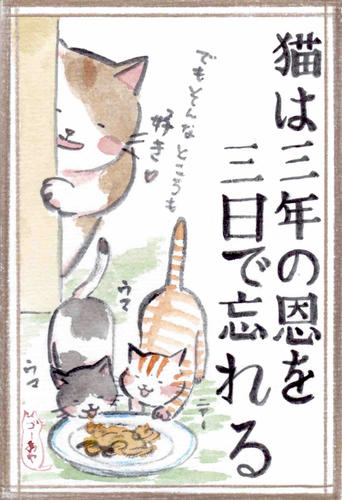 猫は三年の恩を
三日で忘れる
でもそんなところも
好き♡
ウマ
ウマ